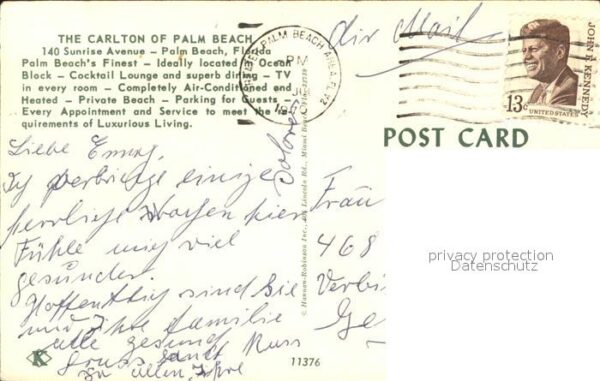 THE CARLTON OF PALM BEACH
140 Sunrise Avenue — Palm Beach, Florida
Palm Beach's Finest — Ideally located Ocean
Block — Cocktail Lounge and superb dining — TV
in every room — Completely Air-Conditioned and
Heated — Private Beach — Parking for Guests
Every Appointment and Service to meet the re-
quirements of Luxurious Living.
Air Mail
PALM BEACH
PM
JOHN F. KENNEDY
13c
UNITED STATES
POST CARD
Liebe
Ich verbringe einige
herrliche Wochen hier
Fühle mich viel
gesünder.
Hoffentlich sind Sie
und Ihre Familie
alle gesund
Gruss Kuss
Ihre
Dolores
Frau
468
Verbi
Ge
privacy protection
Datenschutz
K
11376